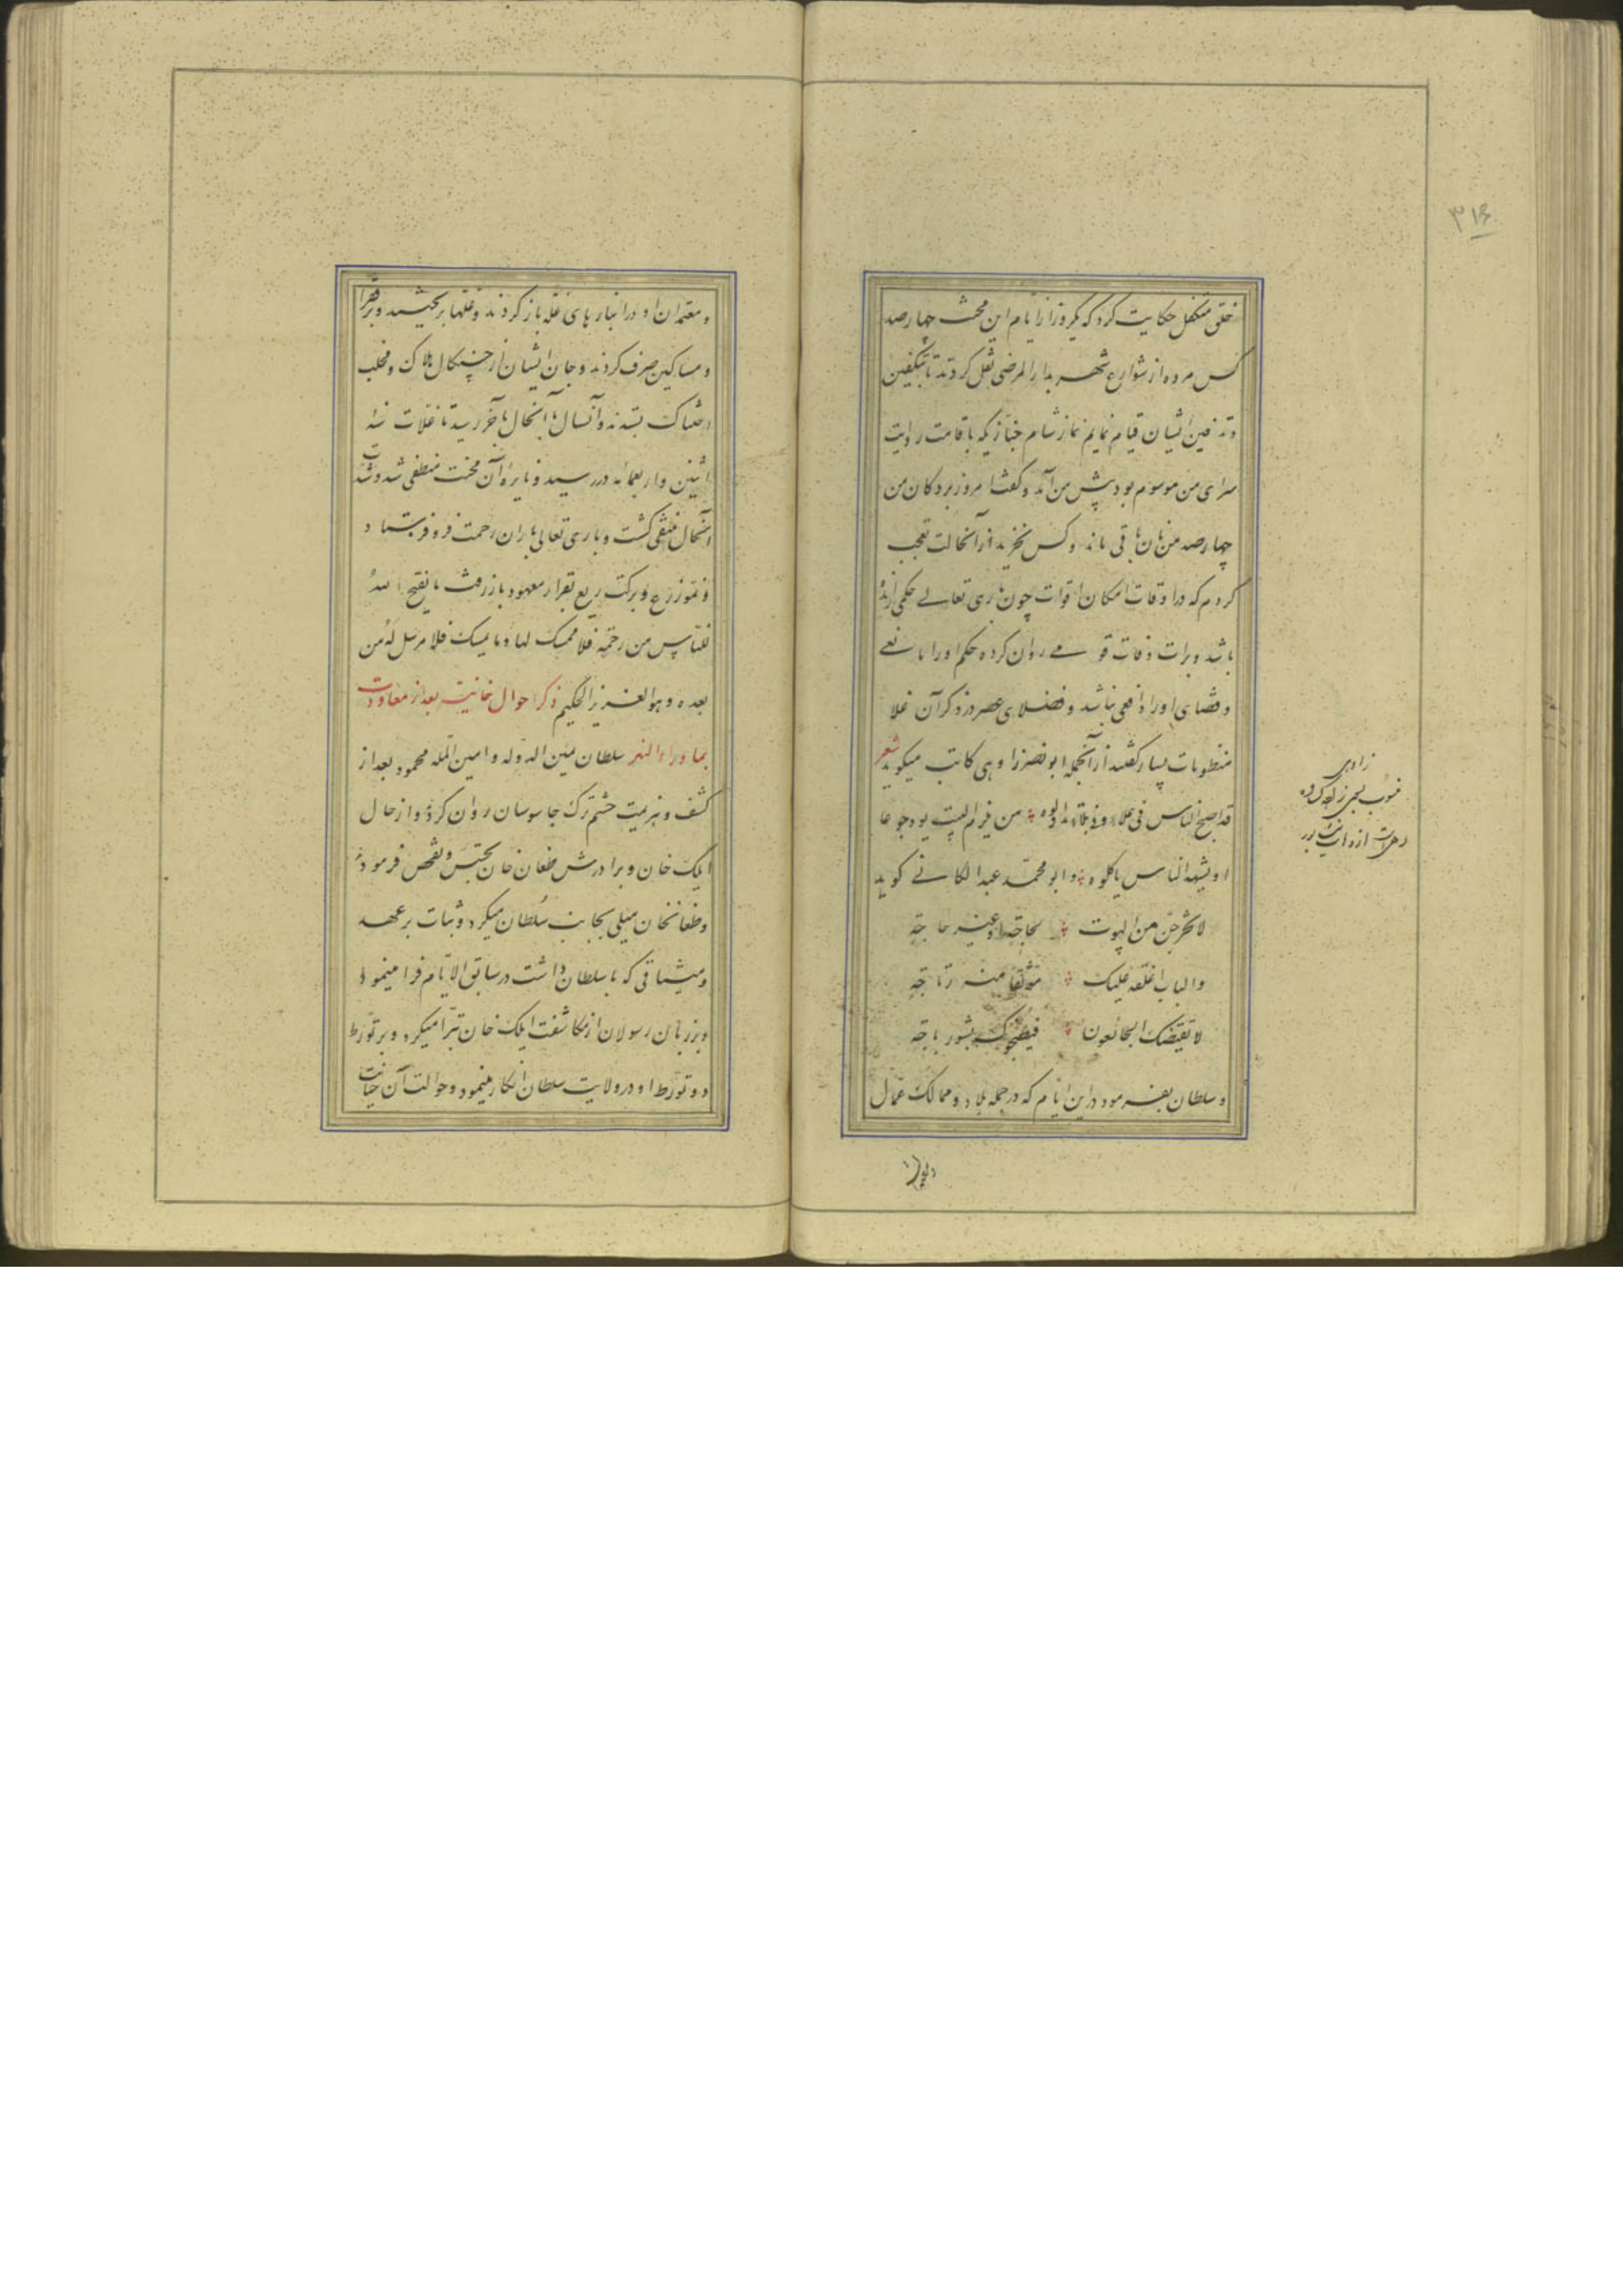 ۳۱۶
خلق متکفل حکایت کرد که یکروز از ایام این محنت چهارصد
کس مرده از شوارع شهر بدار المرضی نقل کردند تا بتکفین
و تدفین ایشان قیام نمایم نماز شام خبازیکه باقامت رایت
سرای من موسوم بود پیش من آمد و گفت امروز بر دکان من
چهارصد من نان باقی ماند و کس نخرید از آنحالت تعجب
کردم که در اوقات امکان اقوات چون باری تعالی حکمی رانده
باشد و برات وفات قومی روان کرده حکم او را مانعی
و قضای او را دافعی نباشد و فضلای عصر در ذکر آن غلا
منظومات بسیار گفتند از آنجمله ابو نصر زاوهی کاتب میکوید شعر
قد اصبح الناس فی غلاء و فی بلاء تداولوه من یلزم البیت یود جوعا
او یشهد الناس یاکلوه و ابو محمد عبدالکانی کوید
لا تخرجن من البیوت لحاجة او غیر حاجة
والباب اغلقه علیک موثقا منه رتاجه
لا یقتضک الجائعون فیطبخوک بشورباجه
و سلطان بفرمود در این ایام که در جمله بلاد و ممالک عمال
زاوهی
و معتمدان او در انبارهای غله باز کردند و غلها بریختند و بر فقرا
و مساکین صرف کردند و جان ایشان از چنگال هلاک و مخلب
بستدند و آنسال با آنحال بآخر رسید تا غلات سنه
اثنین و اربعمائه در رسید و نایره آن محنت منطفی شد و شدت
آنحال منتفی گشت و باری تعالی باران رحمت فرو فرستاد
و نمو زرع و برکت ریع بقرار معهود باز رفت ما یفتح الله
للناس من رحمة فلا ممسک لها و ما یمسک فلا مرسل له من
بعده و هو العزیز الحکیم ذکر احوال خانیت بعد از معاودت
بماوراء النهر سلطان یمین الدوله و امین المله محمود بعد از
کشف و هزیمت حشم ترک جاسوسان روان کرد و از حال
ایلک خان و برادرش طغان خان تجسس و تفحص فرمود
و طغانخان میلی بجانب سلطان میکرد و ثبات بر عهد
و میثاقی که با سلطان داشت در سابق الایام فرا مینمود
و بر زبان رسولان از مکاشفت ایلک خان تبرا میکرد و بر تورط
و تورط او در ولایت سلطان انکار مینمود و حوالت آن خیانت